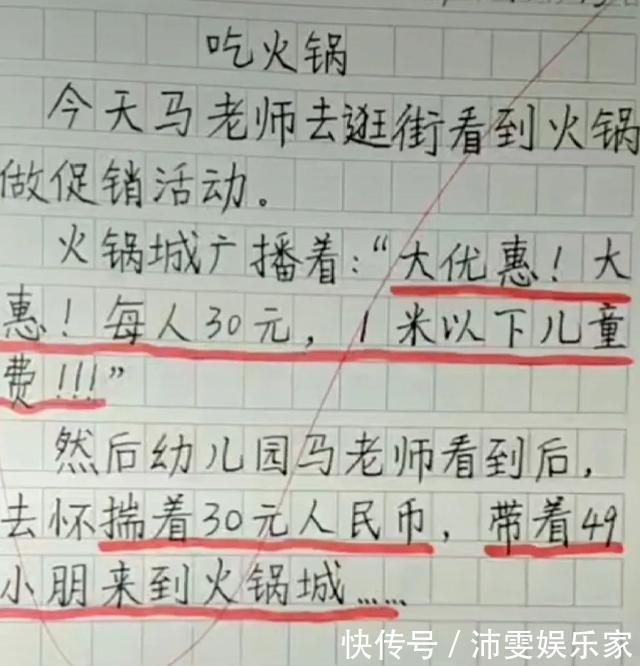 吃火锅
今天马老师去逛街看到火锅
做促销活动。
火锅城广播着:“大优惠!大
惠!每人30元,1米以下儿童
费!!!”
然后幼儿园马老师看到后,
去怀揣着30元人民币,带着49
小朋来到火锅城……
快传号/沛雯娱乐家